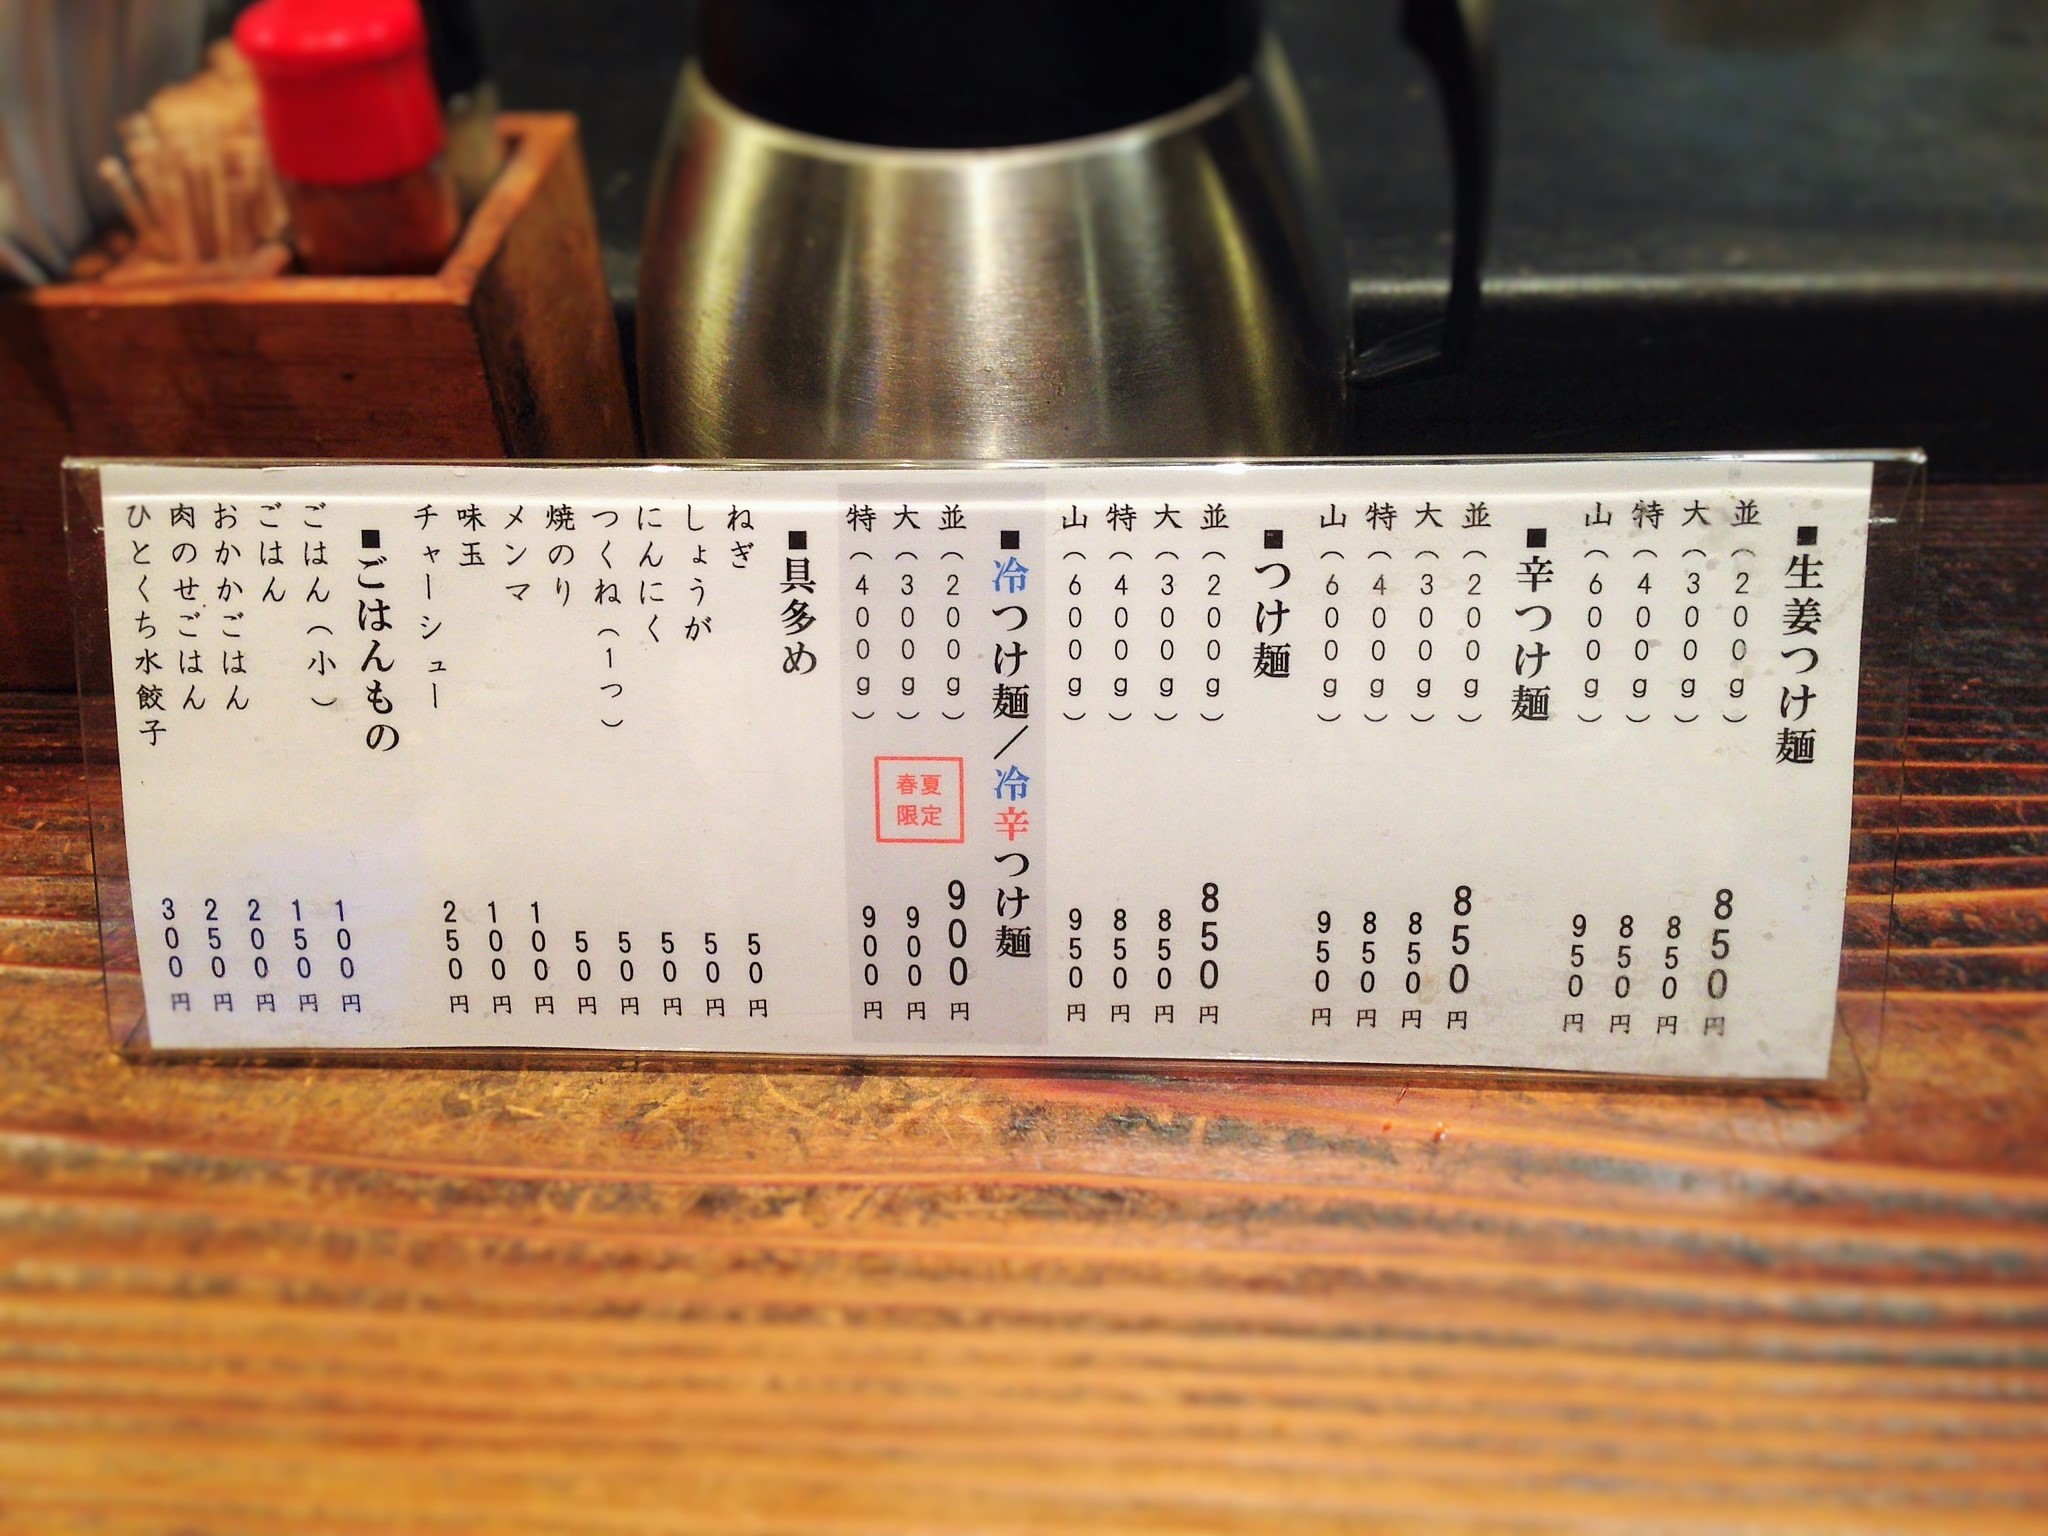 ■生姜つけ麺
並(200g) 850円
大(300g) 850円
特(400g) 850円
山(600g) 950円
■辛つけ麺
並(200g) 850円
大(300g) 850円
特(400g) 850円
山(600g) 950円
■つけ麺
並(200g) 850円
大(300g) 850円
特(400g) 850円
山(600g) 950円
■冷つけ麺/冷辛つけ麺
並(200g) 900円
大(300g) 900円
特(400g) 900円
春夏
限定
■具多め
ねぎ 50円
しょうが 50円
にんにく 50円
つくね(1つ) 50円
焼のり 50円
メンマ 100円
味玉 100円
チャーシュー 250円
■ごはんもの
ごはん(小) 100円
ごはん 150円
おかかごはん 200円
肉のせごはん 250円
ひとくち水餃子 300円